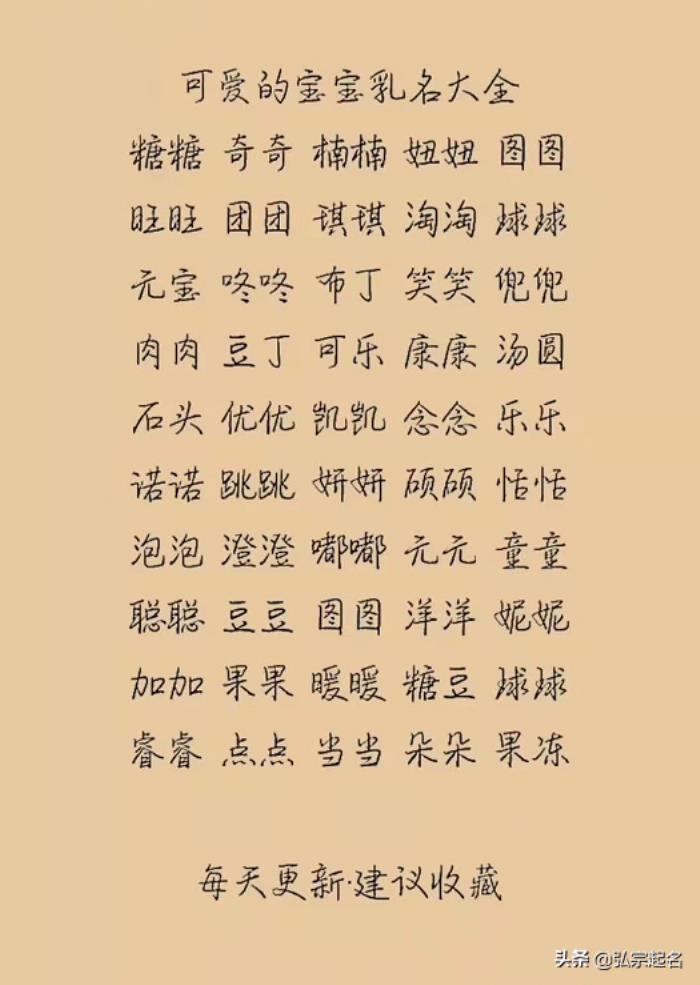 可爱的宝宝乳名大全
糖糖 奇奇 楠楠 妞妞 图图
旺旺 团团 琪琪 淘淘 球球
元宝 咚咚 布丁 笑笑 兜兜
肉肉 豆丁 可乐 康康 汤圆
石头 优优 凯凯 念念 乐乐
诺诺 跳跳 妍妍 硕硕 恬恬
泡泡 澄澄 嘟嘟 元元 童童
聪聪 豆豆 图图 洋洋 妮妮
加加 果果 暖暖 糖豆 球球
睿睿 点点 当当 朵朵 果冻
每天更新·建议收藏
头条 @弘宗起名